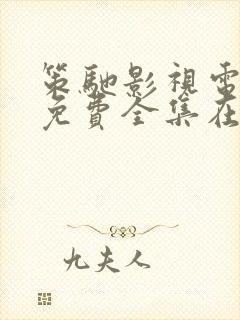 策馳影視電
免費全集在
九夫人